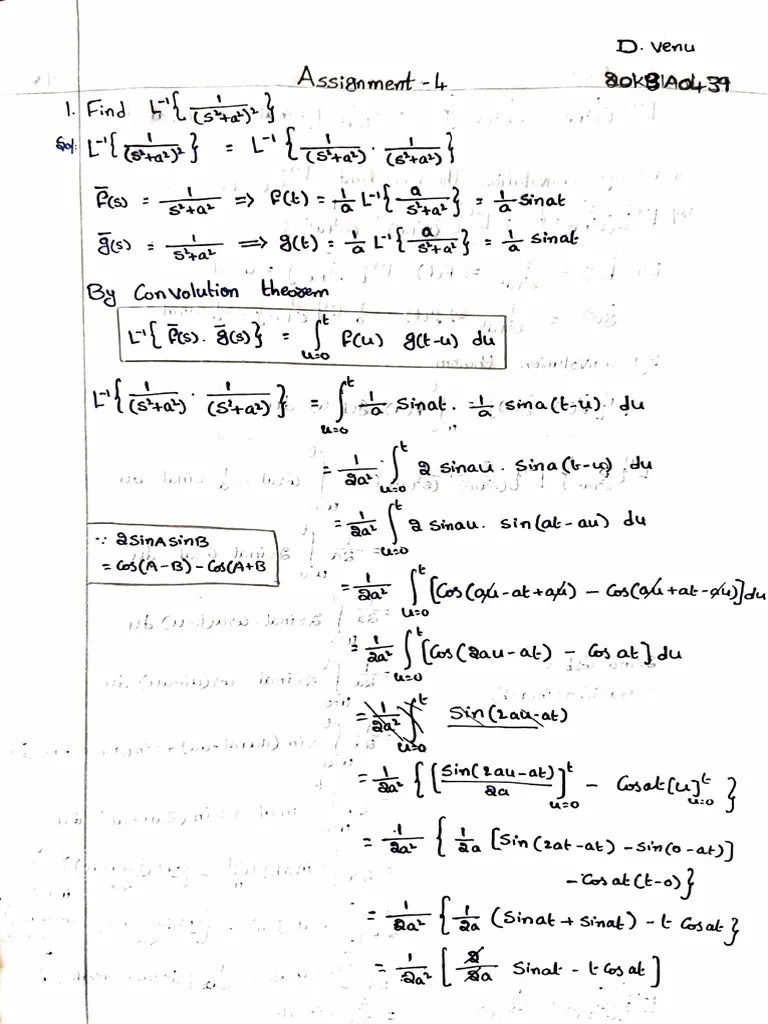 D. Venu
Assignment - 4
20KB1A0439
1. Find L⁻¹{1/(s²+a²)²}
Sol: L⁻¹{1/(s²+a²)²} = L⁻¹{1/(s²+a²) · 1/(s²+a²)}
f̄(s) = 1/s²+a² ⟹ f(t) = 1/a L⁻¹{a/s²+a²} = 1/a sinat
ḡ(s) = 1/s²+a² ⟹ g(t) = 1/a L⁻¹{a/s²+a²} = 1/a sinat
By Convolution theorem
L⁻¹{f̄(s). ḡ(s)} = ∫_{u=0}^{t} f(u) g(t-u) du
L⁻¹{1/(s²+a²) · 1/(s²+a²)} = ∫_{u=0}^{t} 1/a sinat. 1/a sina(t-u) du
= 1/2a² ∫_{u=0}^{t} 2 sinau. sina(t-u) du
= 1/2a² ∫_{u=0}^{t} 2 sinau. sin(at-au) du
∵ 2sinAsinB
= Cos(A-B) - Cos(A+B
= 1/2a² ∫_{u=0}^{t} [Cos(au-at+au) - Cos(au+at-au)]du
= 1/2a² ∫_{u=0}^{t} [Cos(2au-at) - Cosat]du
= 1/2a² ∫_{u=0}^{t} Sin(2au-at)
= 1/2a² {[Sin(2au-at)/2a]_{u=0}^{t} - Cosat[u]_{u=0}^{t}}
= 1/2a² {1/2a [Sin(2at-at) - Sin(0-at)]
- Cosat(t-0)}
= 1/2a² {1/2a (Sinat + Sinat) - t Cosat}
= 1/2a² [2/2a Sinat - t Cosat]